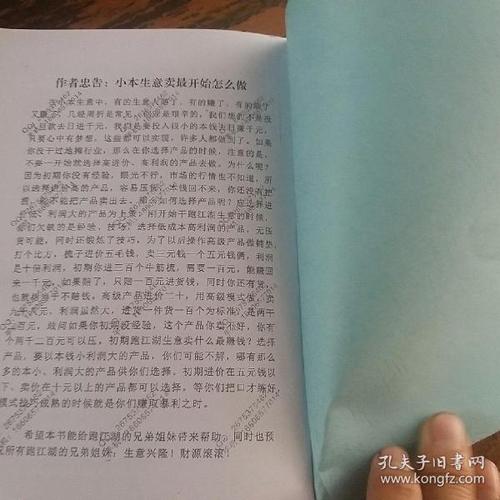 作者忠告：小本生意卖最开始怎么做
在小本生意中，有的生意人赔了，有的赚了，有的赚了
又赚，几经周折是常见，创业是艰辛的，我们虽然不是没
日敢去日进千元，我们是要投入很小的本钱去日赚千元，
只要心中有梦想，这些都可以实现，许多人都做到了。如果
你没干过地摊行业，那么在你选择产品的时候，注意的是，
不要一开始就选择高进价、高利润的产品去做。为什么呢？
因为初期你没有经验，眼光不行，市场的行情也不知道，所
以选择进价高的产品，容易压货，本钱回不来，你还没有把
握，能不能把产品卖出去。那么如何选择产品呢？应选择进
价低、利润大的产品为上策，刚开始干跑江湖生意的时候，
们欠缺的是经验，技巧，选择低成本高利润的产品，无压
货可能，同时还锻炼了技巧，为了以后操作高级产品做铺垫，
打个比方，梳子进价五毛钱，卖三元钱一个五元钱俩，利润
是十倍利润，初期你进三百个牛筋梳，需要一百元，能赚回
来一千元，如果赔了，只赔一百元进货钱，同时你还有货，
也就相当于不赔钱，高级产品进价二十，用高级模式做，卖
九十八元，利润虽然大，进货一件货一百个为标准，是两千
二百元，敢问如果你初期没经验，这个产品你卖不好，你有
个两千二百元可以压，初期跑江湖生意卖什么最赚钱？选择
产品，要以本钱小利润大的产品，你们可能不解，哪有那么
多的本小、利润大的产品供你们选择，初期进价在五元钱以
下、卖价在十元以上的产品都可以选择，等你们把口才练好
模式技巧成熟的时候就是你们赚取暴利之时。
希望本书能给跑江湖的兄弟姐妹带来帮助，同时也预
祝所有跑江湖的兄弟姐妹：生意兴隆！财源滚滚
孔夫子旧书网
www.kongfz.com